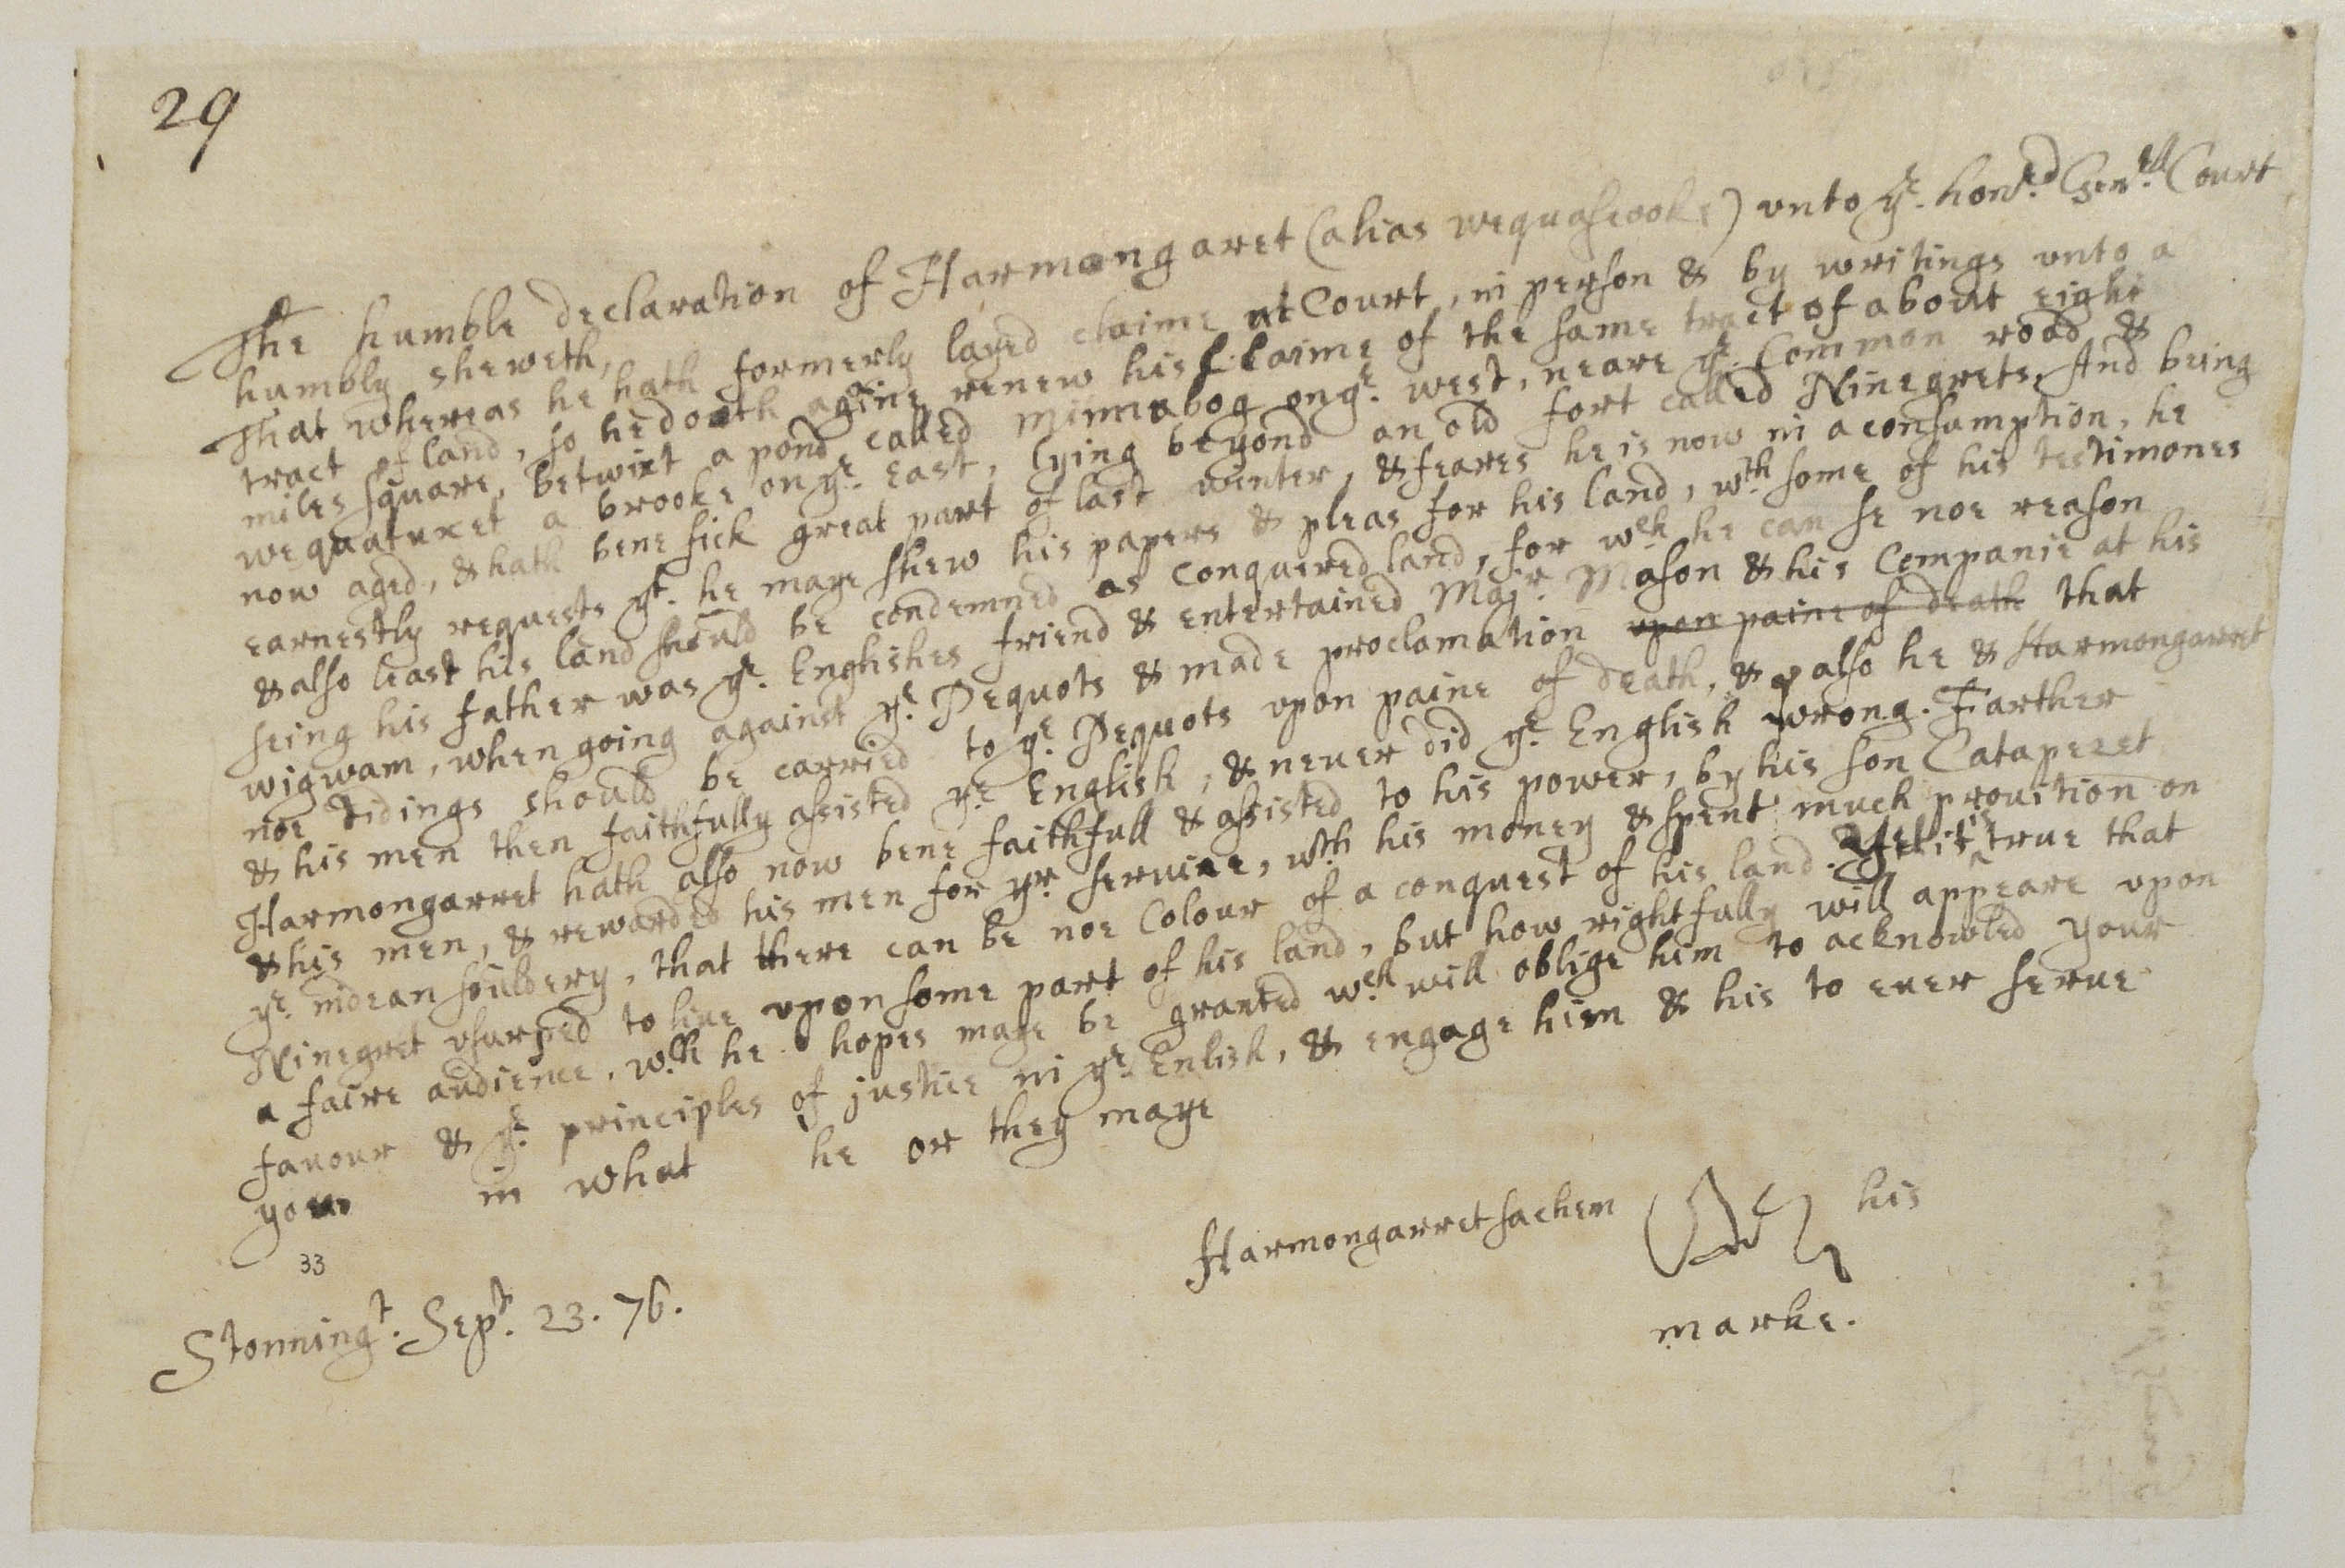 29
The humble declaration of Harmongaret (alias wequascooke) vnto ye. honrd. Genrll Court
humbly sheweth,
That whereas he hath formerly layed claime at Court, in person & by writings vnto a
tract of land, so he doeth againe renew his claime of the same tract of about eight
miles square, betwixt a pond called Minnabog on ye. west, neare ye. Common road &
wequatuxet a brooke on ye. east, lying beyond an old fort called Ninegrets, And being
now aged, & hath bene sick great part of last winter, & feares he is now in a consumption, he
earnestly requests yt. he maye shew his papers & pleas for his land, wth some of his testimones
& also least his land should be condemned as conquered land, for wch he can se noe reason
seing his father was ye. Englishes friend & entertained Majr. Mason & his Companie at his
wigwam, when going against ye. Pequots & made proclamation upon paine of death that
noe tidings should be carried to ye. Pequots vpon paine of death, & also he & Harmongarret
& his men then faithfully assisted ye. English, & neuer did ye. English wrong. Farther
Harmongarret hath also now bene faithfull & assisted to his power, by his son Catapezet
& his men, & rewarded his men for yr. seruice, wth his money & spent much prouition on
ye. indean souldery, that there can be noe Colour of a conquest of his land. Yet it is true that
Ninegret vsurped to liue vpon some part of his land, but how rightfully will appeare vpon
a faire audience, wch he hopes maye be granted wch will oblige him to acknowled your
fauour & ye. principles of justice in ye. Enlish, & engage him & his to euer serue
you in what he or they maye
Harmongarret sachem his
marke.
33
Stonningt. Sept. 23. 76.